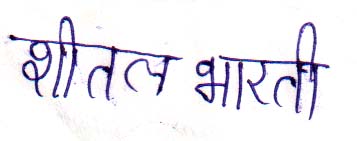 शीतल भारती